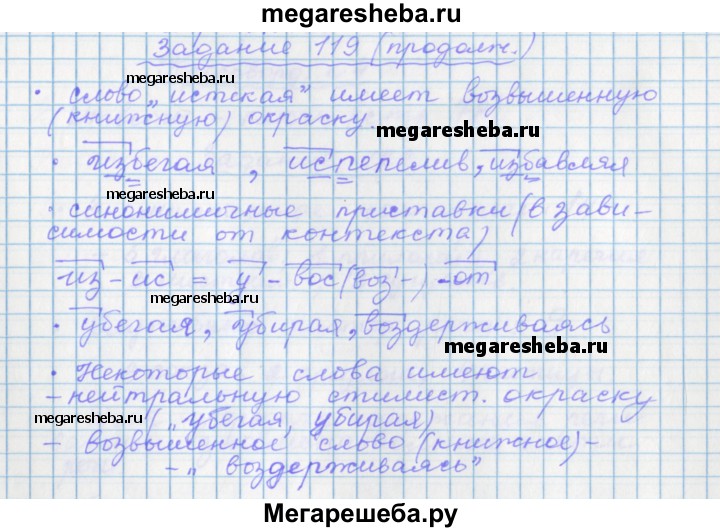 megaresheba.ru
Задание 119 (продолж.)
megaresheba.ru
• слово „истская" имеет возвышенную
(книжную) окраску.
megaresheba.ru
• избегая, испепелив, избавлял
megaresheba.ru
• синонимичные приставки (в зави-
симости от контекста)
из - ис = у - вос (воз-) - от
megaresheba.ru
• убегая, убирая, воздерживаясь
megaresheba.ru
• Некоторые слова имеют
- нейтральную стилист. окраску
megaresheba.ru
(„убегая, убирая)
- возвышенное слово (книжное) -
- „воздерживаясь"
Мегарешеба.ру